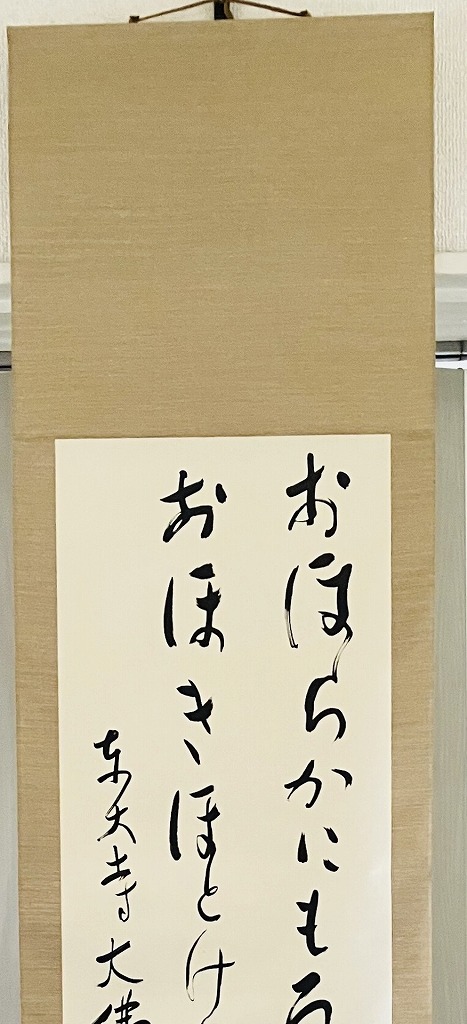 おほらかにも
おほきほとけ
東大寺大佛